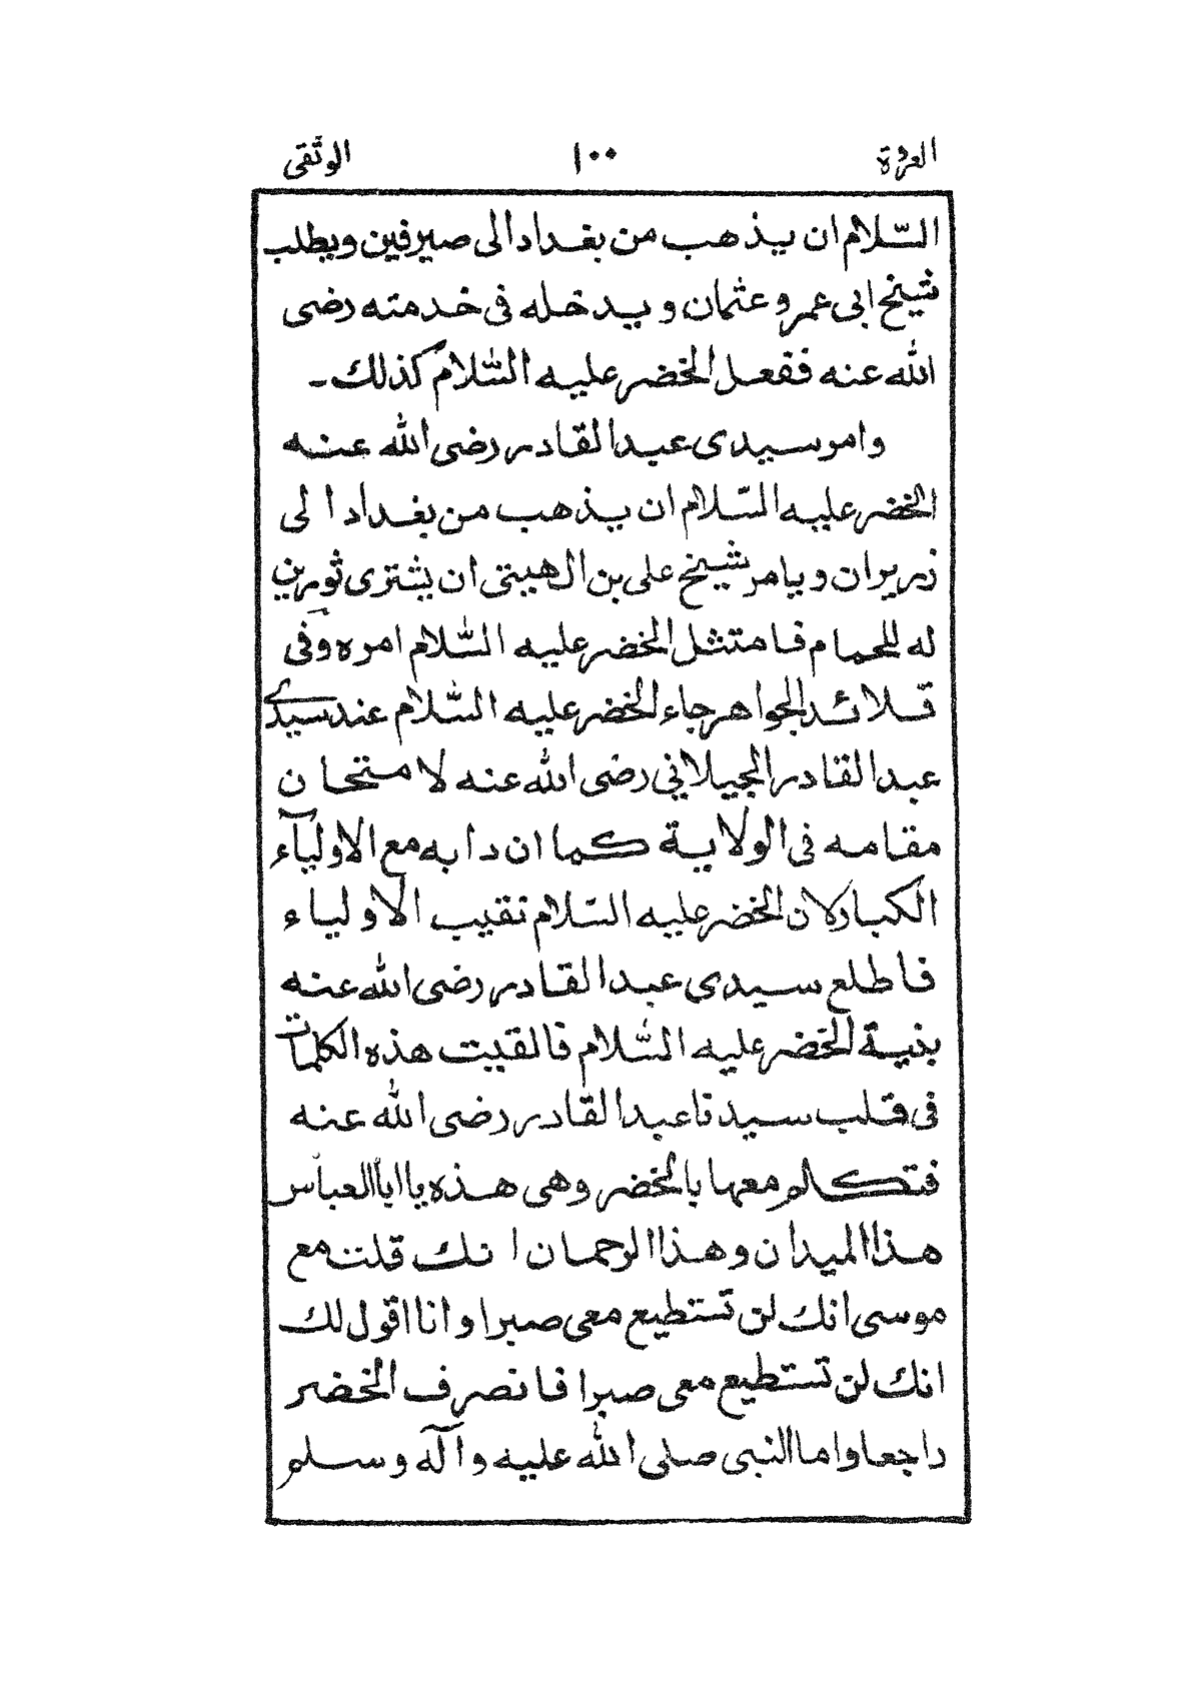 العروة ١٠٠ الوثقى
السّلام ان يذهب من بغداد الى صيرفين ويطلب
شيخ ابى عمرو عثمان ويدخله فى خدمته رضى
الله عنه ففعل الخضر عليه السّلام كذلك ـ
وامر سيدى عبد القادر رضى الله عنه
الخضر عليه السّلام ان يذهب من بغداد الى
زريران ويامر شيخ على بن الهيتى ان يشترى ثورين
له للحمام فامتثل الخضر عليه السّلام امره وفى
قلائد الجواهر جاء الخضر عليه السّلام عند سيدى
عبد القادر الجيلانى رضى الله عنه لامتحان
مقامه فى الولاية كما ان دابه مع الاوليآء
الكبار لان الخضر عليه السّلام نقيب الاولياء
فاطلع سيدى عبد القادر رضى الله عنه
بنية الخضر عليه السّلام فالقيت هذه الكلمات
فى قلب سيدنا عبد القادر رضى الله عنه
فتكلم معها بالخضر وهى هذه يا ابا العباس
هذا الميدان وهذا الرحمان انك قلت مع
موسى انك لن تستطيع معى صبرا وانا اقول لك
انك لن تستطيع معى صبرا فانصرف الخضر
راجعا واما النبى صلى الله عليه وآله وسلم